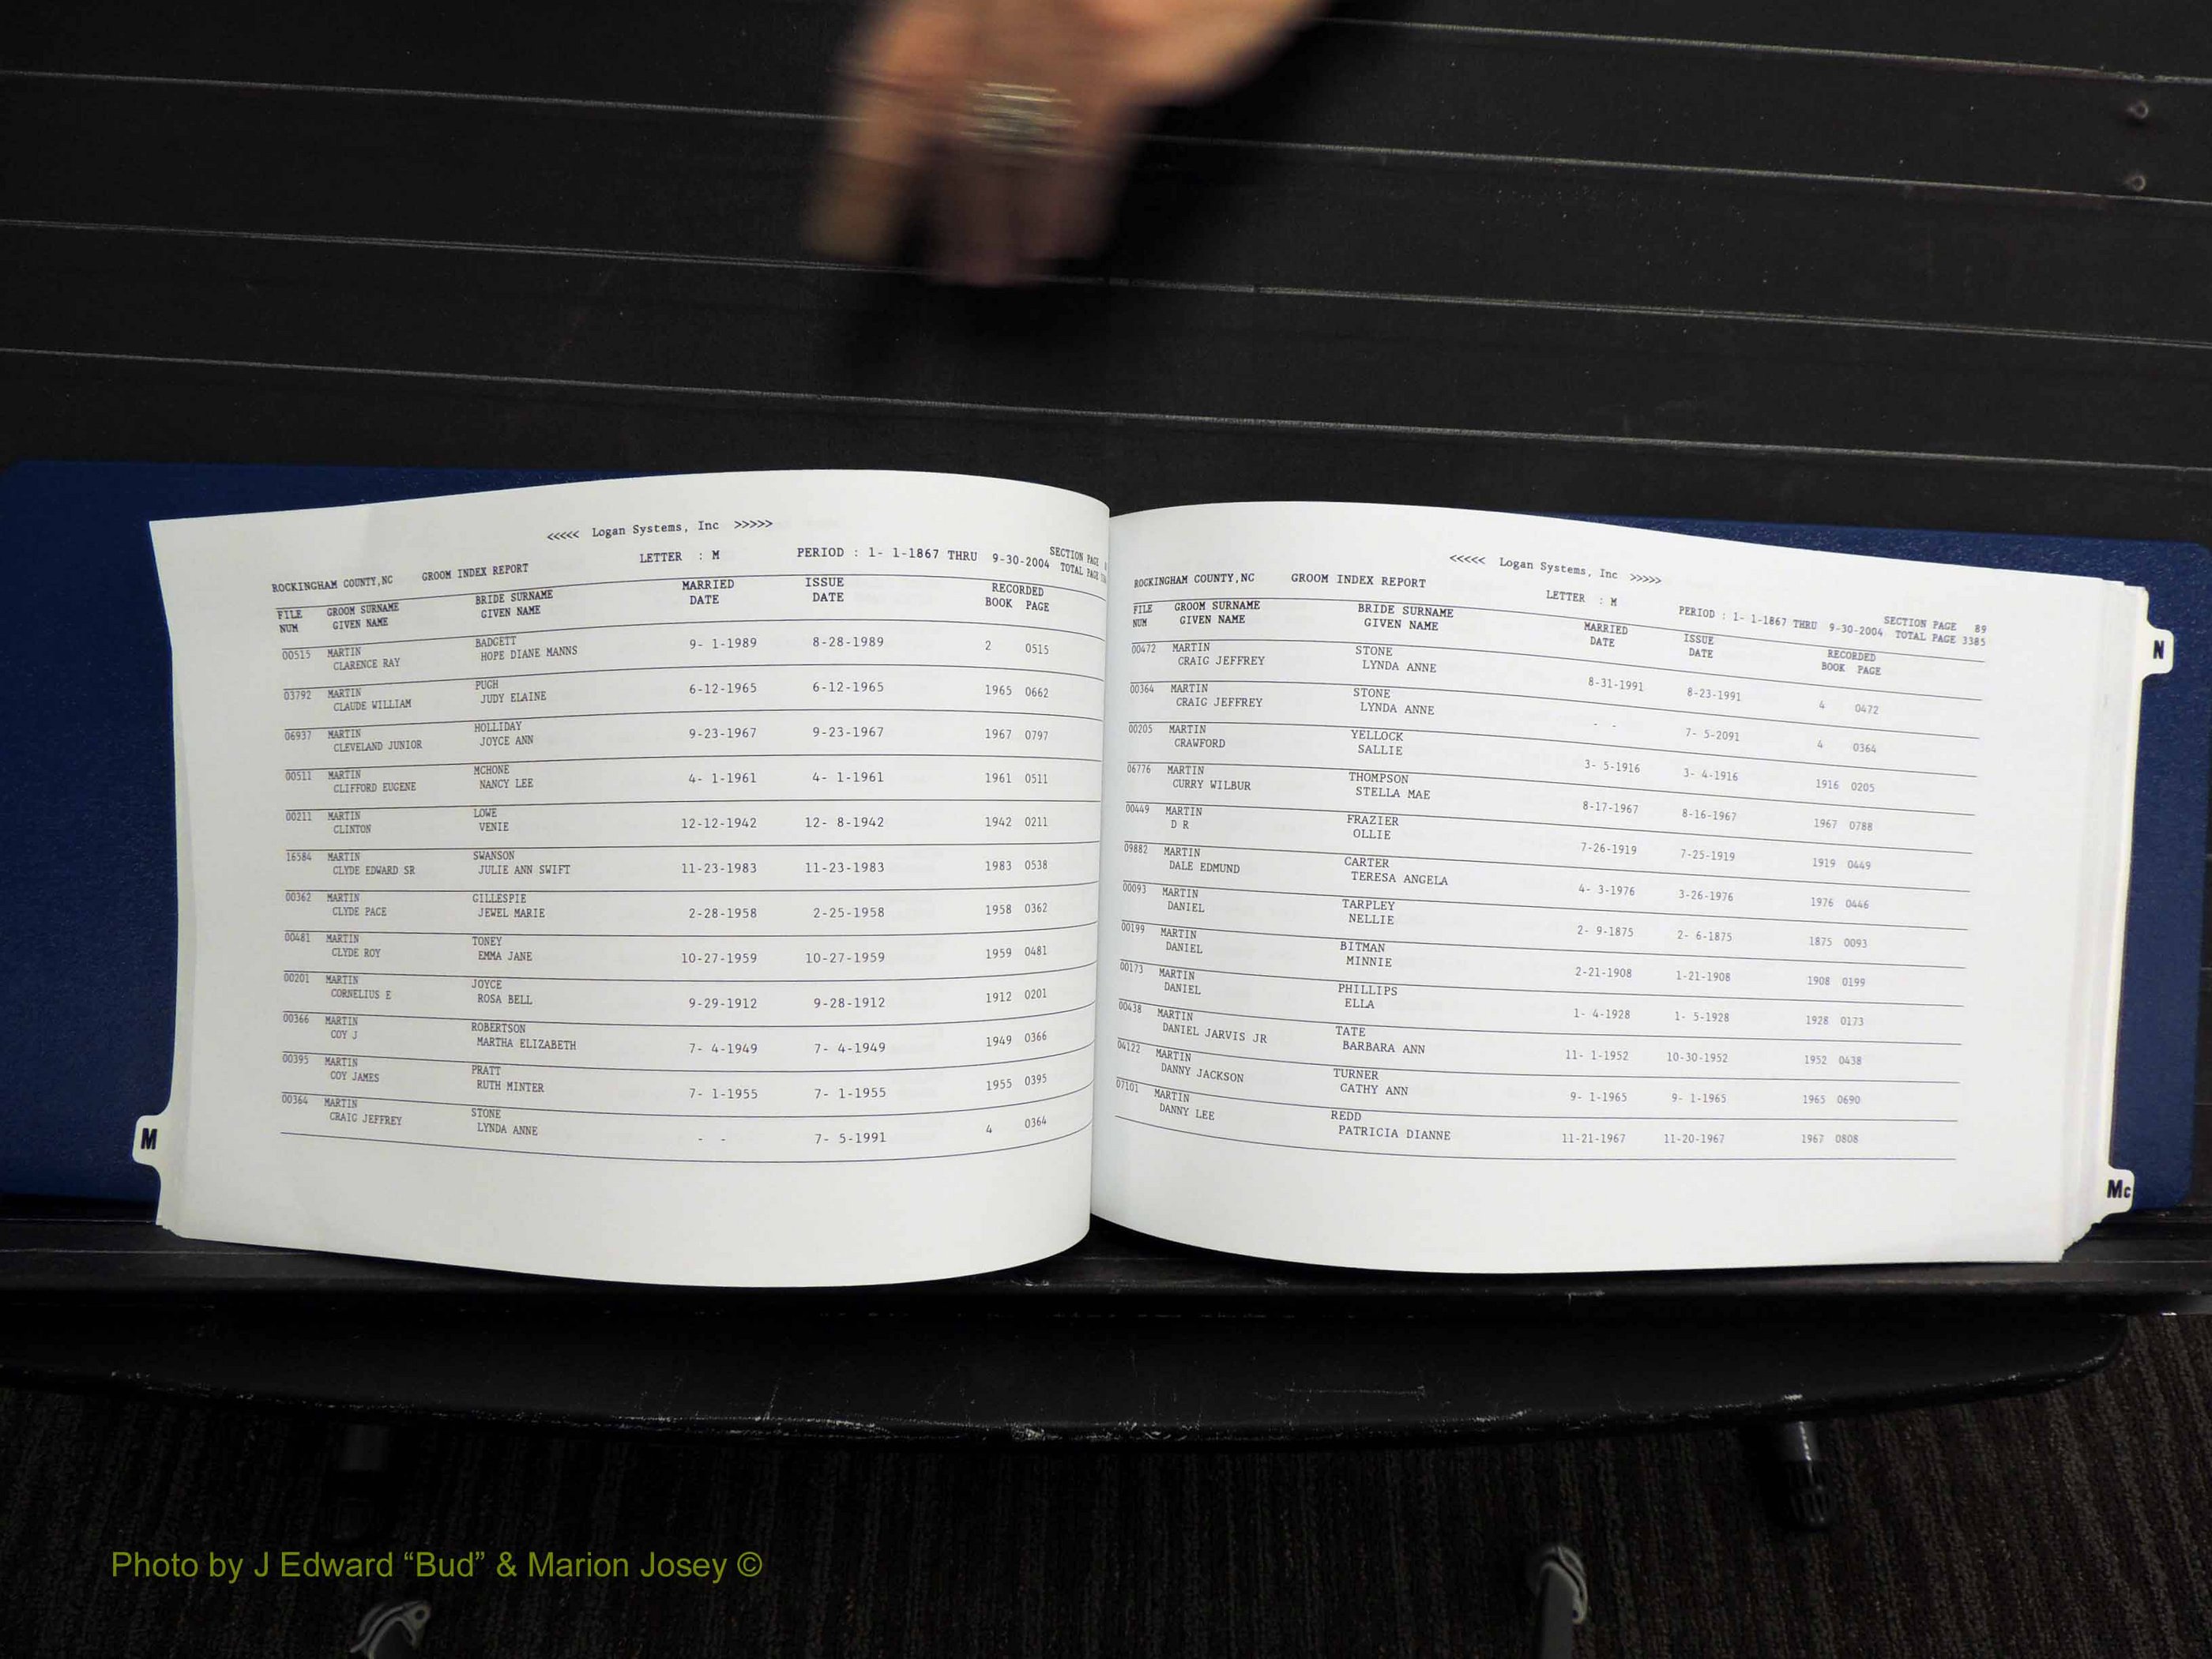 <<<<< Logan Systems, Inc >>>>>
ROCKINGHAM COUNTY,NC GROOM INDEX REPORT LETTER : M PERIOD : 1- 1-1867 THRU 9-30-2004 SECTION PAGE
TOTAL PAGE
FILE GROOM SURNAME BRIDE SURNAME MARRIED ISSUE RECORDED
NUM GIVEN NAME GIVEN NAME DATE DATE BOOK PAGE
00515 MARTIN BADGETT 9- 1-1989 8-28-1989 2 0515
CLARENCE RAY HOPE DIANE MANNS
03792 MARTIN PUGH 6-12-1965 6-12-1965 1965 0662
CLAUDE WILLIAM JUDY ELAINE
06937 MARTIN HOLLIDAY 9-23-1967 9-23-1967 1967 0797
CLEVELAND JUNIOR JOYCE ANN
00511 MARTIN MCHONE 4- 1-1961 4- 1-1961 1961 0511
CLIFFORD EUGENE NANCY LEE
00211 MARTIN LOWE 12-12-1942 12- 8-1942 1942 0211
CLINTON VENIE
16584 MARTIN SWANSON 11-23-1983 11-23-1983 1983 0538
CLYDE EDWARD SR JULIE ANN SWIFT
00362 MARTIN GILLESPIE 2-28-1958 2-25-1958 1958 0362
CLYDE PACE JEWEL MARIE
00481 MARTIN TONEY 10-27-1959 10-27-1959 1959 0481
CLYDE ROY EMMA JANE
00201 MARTIN JOYCE 9-29-1912 9-28-1912 1912 0201
CORNELIUS E ROSA BELL
00366 MARTIN ROBERTSON 7- 4-1949 7- 4-1949 1949 0366
COY J MARTHA ELIZABETH
00395 MARTIN PRATT 7- 1-1955 7- 1-1955 1955 0395
COY JAMES RUTH MINTER
00364 MARTIN STONE - - 7- 5-1991 4 0364
CRAIG JEFFREY LYNDA ANNE
M
<<<<< Logan Systems, Inc >>>>>
ROCKINGHAM COUNTY,NC GROOM INDEX REPORT LETTER : M PERIOD : 1- 1-1867 THRU 9-30-2004 SECTION PAGE 89
TOTAL PAGE 3385
FILE GROOM SURNAME BRIDE SURNAME MARRIED ISSUE RECORDED
NUM GIVEN NAME GIVEN NAME DATE DATE BOOK PAGE
00472 MARTIN STONE 8-31-1991 8-23-1991 4 0472
CRAIG JEFFREY LYNDA ANNE
00364 MARTIN STONE - - 7- 5-2091 4 0364
CRAIG JEFFREY LYNDA ANNE
00205 MARTIN YELLOCK 3- 5-1916 3- 4-1916 1916 0205
CRAWFORD SALLIE
06776 MARTIN THOMPSON 8-17-1967 8-16-1967 1967 0788
CURRY WILBUR STELLA MAE
00449 MARTIN FRAZIER 7-26-1919 7-25-1919 1919 0449
D R OLLIE
09882 MARTIN CARTER 4- 3-1976 3-26-1976 1976 0446
DALE EDMUND TERESA ANGELA
00093 MARTIN TARPLEY 2- 9-1875 2- 6-1875 1875 0093
DANIEL NELLIE
00199 MARTIN BITMAN 2-21-1908 1-21-1908 1908 0199
DANIEL MINNIE
00173 MARTIN PHILLIPS 1- 4-1928 1- 5-1928 1928 0173
DANIEL ELLA
00438 MARTIN TATE 11- 1-1952 10-30-1952 1952 0438
DANIEL JARVIS JR BARBARA ANN
04122 MARTIN TURNER 9- 1-1965 9- 1-1965 1965 0690
DANNY JACKSON CATHY ANN
07101 MARTIN REDD 11-21-1967 11-20-1967 1967 0808
DANNY LEE PATRICIA DIANNE
N
Mc
Photo by J Edward “Bud” & Marion Josey ©